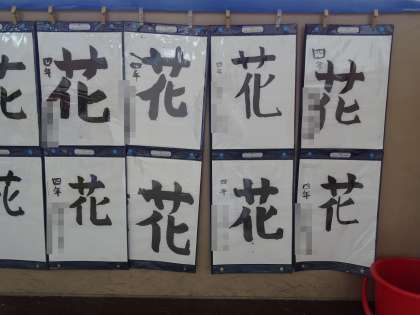 花
四年 花
四年 花
花
四年 花
花
四年 花
花
四年 花
四年 花